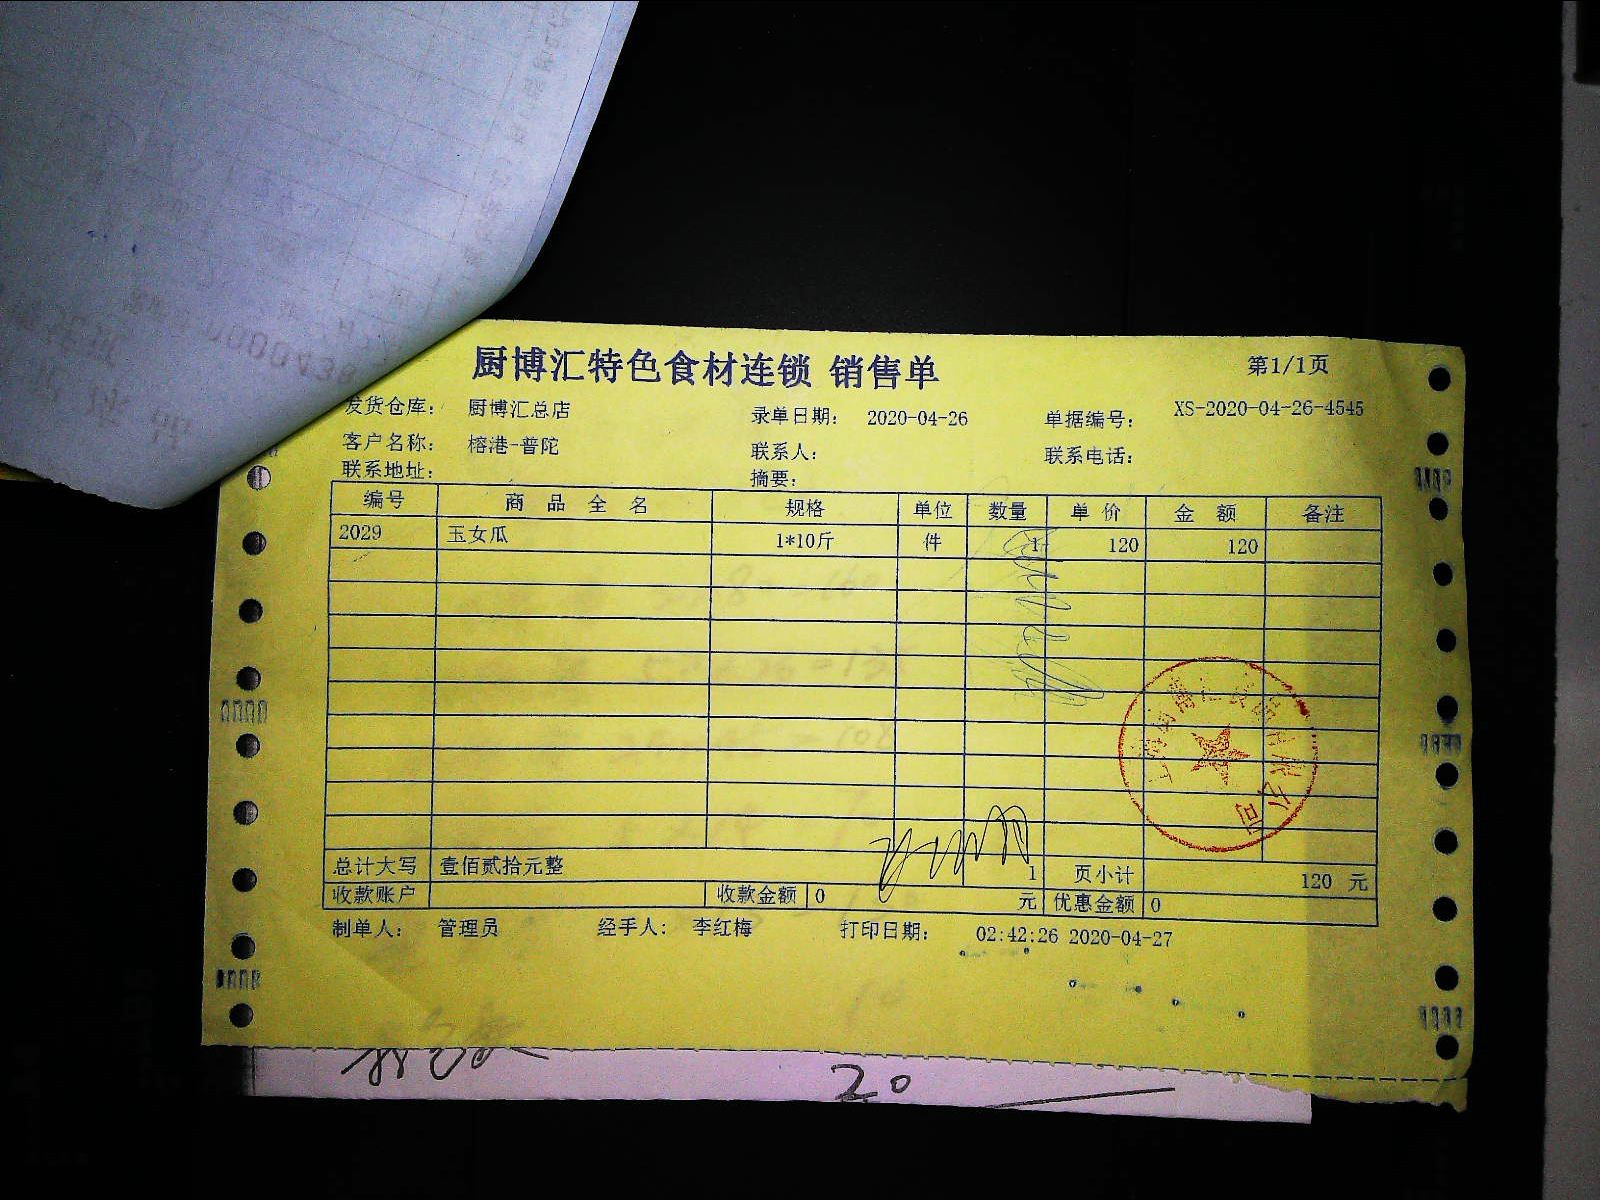 厨博汇特色食材连锁 销售单 第1/1页
发货仓库： 厨博汇总店 录单日期： 2020-04-26 单据编号： XS-2020-04-26-4545
客户名称： 榕港-普陀 联系人： 联系电话：
联系地址： 摘要：
编号 商品全名 规格 单位 数量 单价 金额 备注
2029 玉女瓜 1*10斤 件 1 120 120
总计大写 壹佰贰拾元整 1 页小计 120 元
收款账户 收款金额 0 元 优惠金额 0
制单人： 管理员 经手人： 李红梅 打印日期： 02:42:26 2020-04-27
20